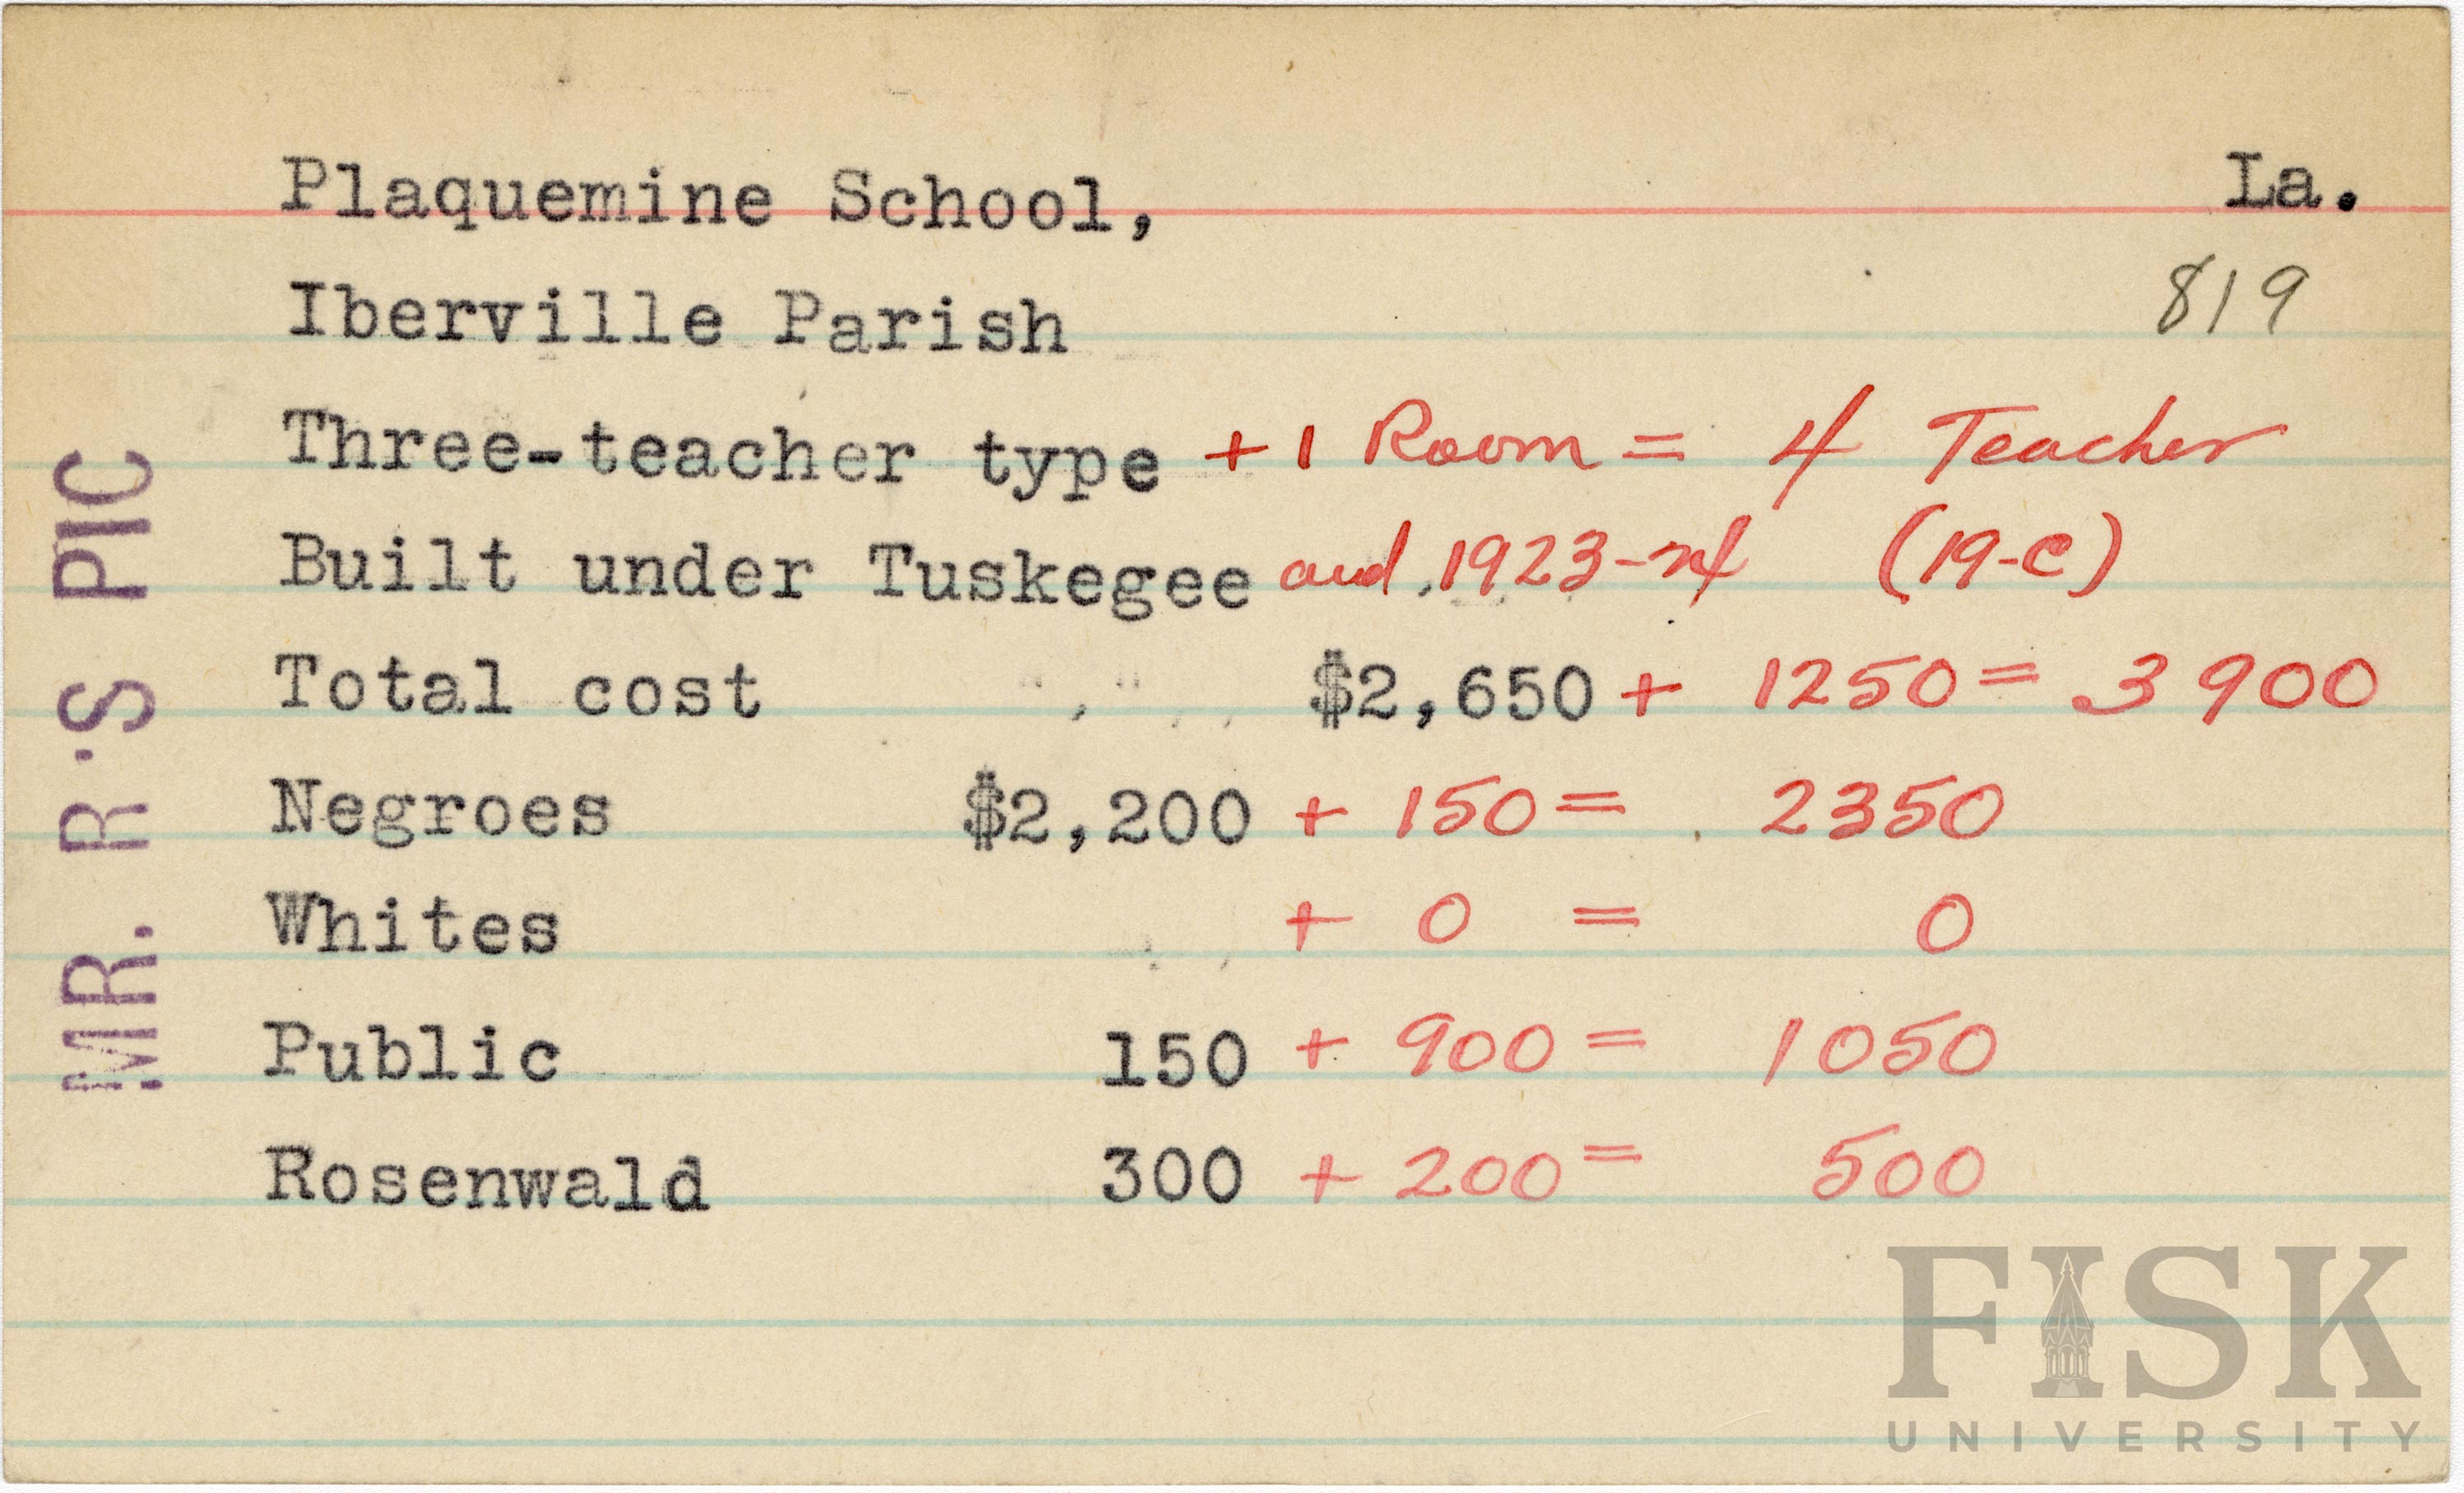 Plaquemine School, La.
Iberville Parish 819
Three-teacher type + 1 Room = 4 Teacher
Built under Tuskegee and 1923-24 (19-C)
Total cost $2,650 + 1250 = 3900
Negroes $2,200 + 150 = 2350
Whites + 0 = 0
Public 150 + 900 = 1050
Rosenwald 300 + 200 = 500
MR. R·S PIC
FISK
UNIVERSITY